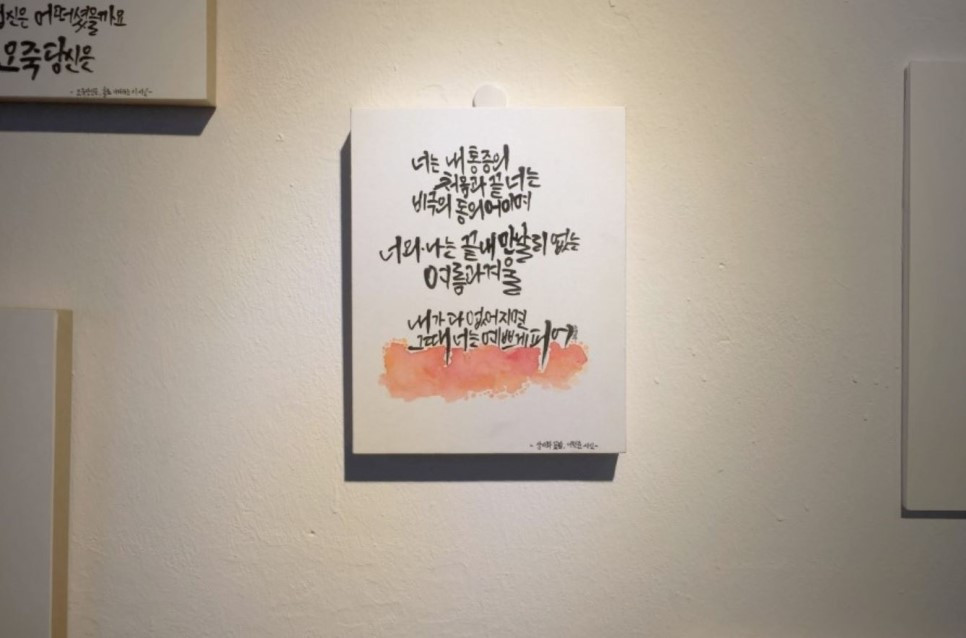 진은 어떠셨을까요
오죽 당신은
너는 내 통증의
처음과 끝 너는
비극의 동의어이며
너와 나는 끝내 만날 리 없는
여름과 겨울
내가 다 없어지면
그때 너는 예쁘게 피어